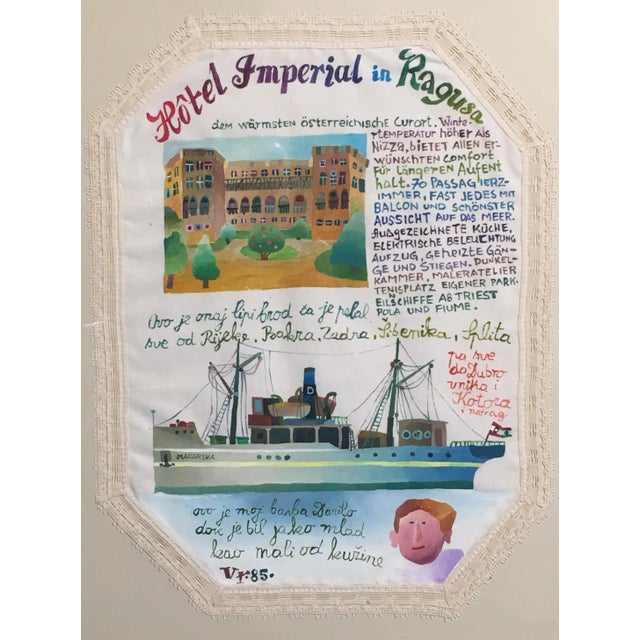 Hôtel Imperial in Ragusa
dem wärmsten österreichische Curort. Winte-
rtemperatur höher als
Nizza, bietet allen er-
wünschten Comfort
für längeren Aufent
halt. 70 Passagierz-
immer, fast jedes mit
Balcon und schönster
Aussicht auf das Meer.
Außgezeichnete Küche,
elektrische Beleuchtung
Aufzug, geheizte Gän-
ge und Stiegen. Dunkel-
kammer, Maleratelier
Tenisplatz eigener Park.
Eilschiffe ab Triest
Pola und Fiume.
Ovo je onaj lipi brod ča je pelal
sve od Rijeke, Bakra, Zadra, Šibenika, Splita
pa sve
do Dubro
vnika i
Kotora
i natrag
D
MAKARSKA
ovo je moj barba Danilo
dok je bil jako mlad
kao mali od kužine
Vr. 85.